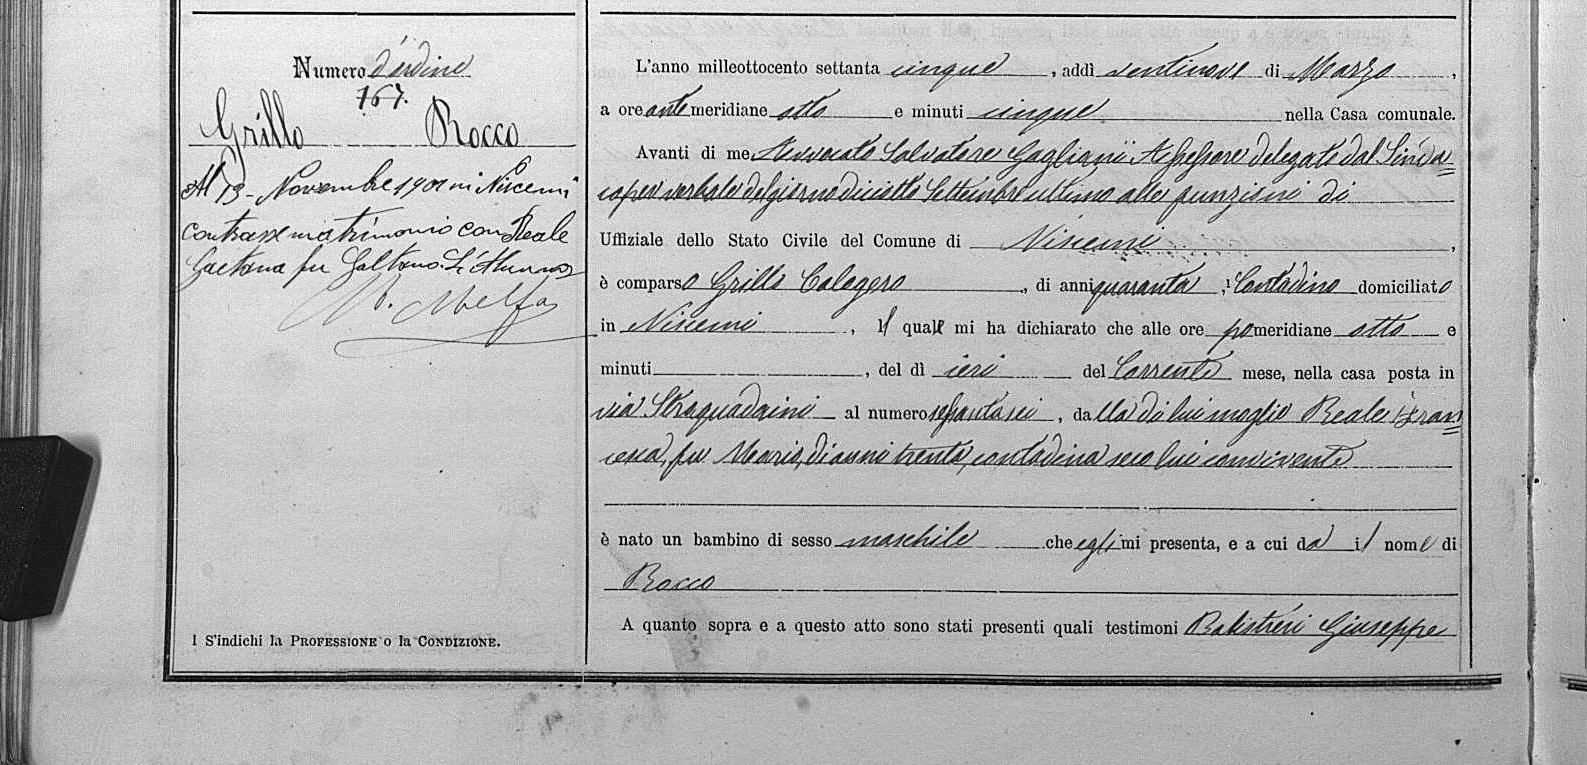 Numero d'ordine
167.
Grillo Rocco
Al 13 - Novembre 1901 in Niscemi
contrasse matrimonio con Reale
Gaetana fu Gaetano.
B. Melfa
1 S'indichi la PROFESSIONE o la CONDIZIONE.
L'anno milleottocento settanta cinque, addì ventinove di Marzo,
a ore antemeridiane otto e minuti cinque nella Casa comunale.
Avanti di me Avvocato Salvatore Gagliani Assessore delegato dal Sinda=
co per verbale del giorno diciotto Settembre ultimo alle funzioni di
Uffiziale dello Stato Civile del Comune di Niscemi,
è comparso Grillo Calogero, di anni quaranta, 1 Contadino domiciliato
in Niscemi, il quale mi ha dichiarato che alle ore pomeridiane otto e
minuti, del dì ieri del Corrente mese, nella casa posta in
via al numero, dalla di lui moglie Reale Fran=
cesca, fu Mario, di anni trenta, contadina seco lui convivente
è nato un bambino di sesso maschile che egli mi presenta, e a cui dà il nome di
Rocco
A quanto sopra e a questo atto sono stati presenti quali testimoni Balistrieri Giuseppe